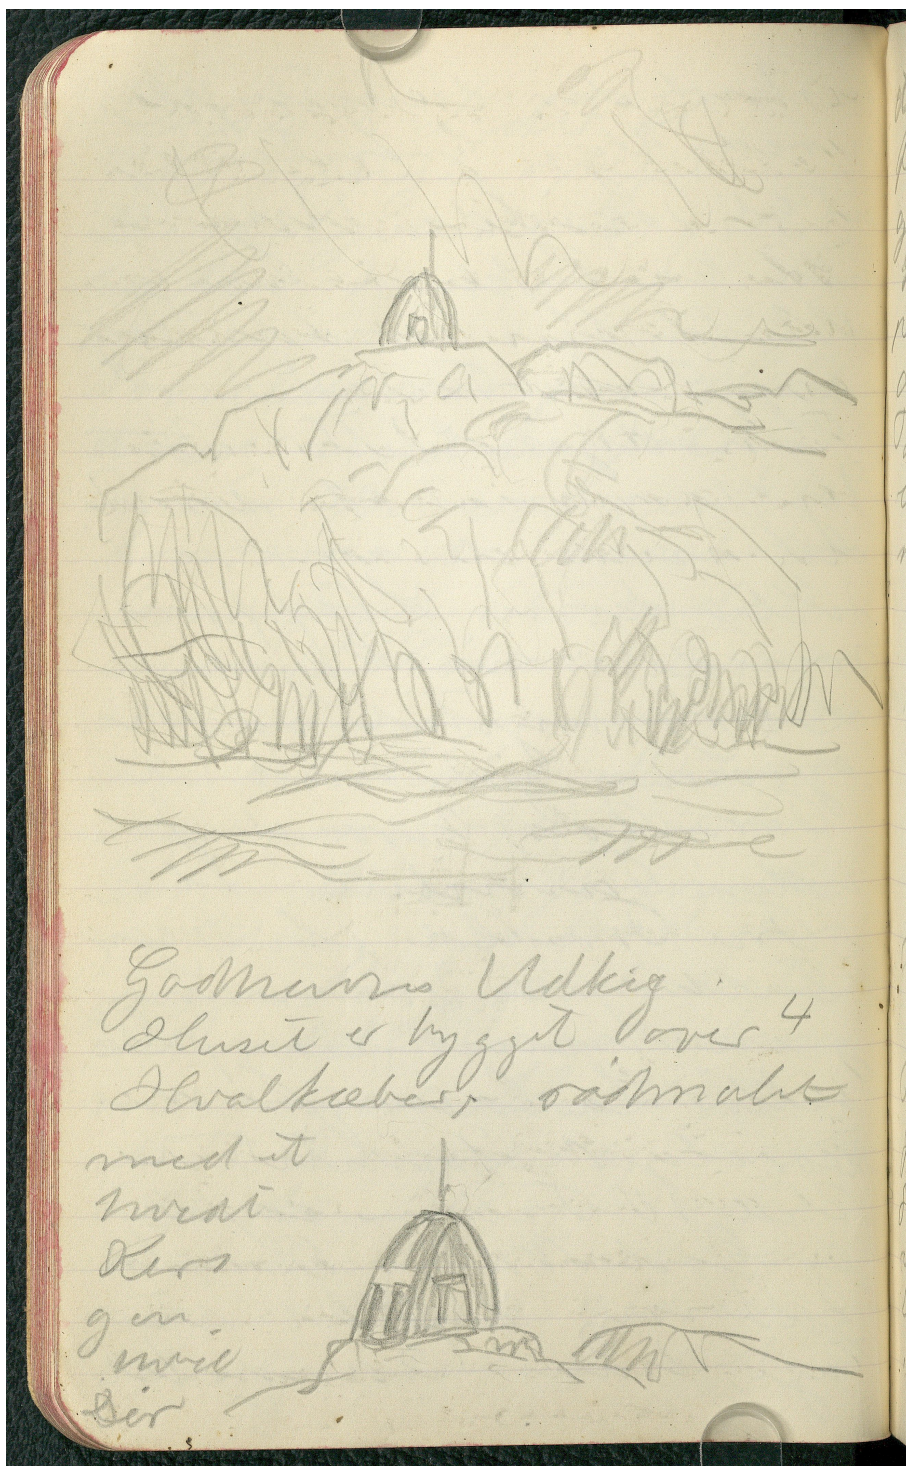 Godhavns Udkig.
Huset er bygget over 4
Hvalkæber, rødmalet
med et
hvidt
Kors